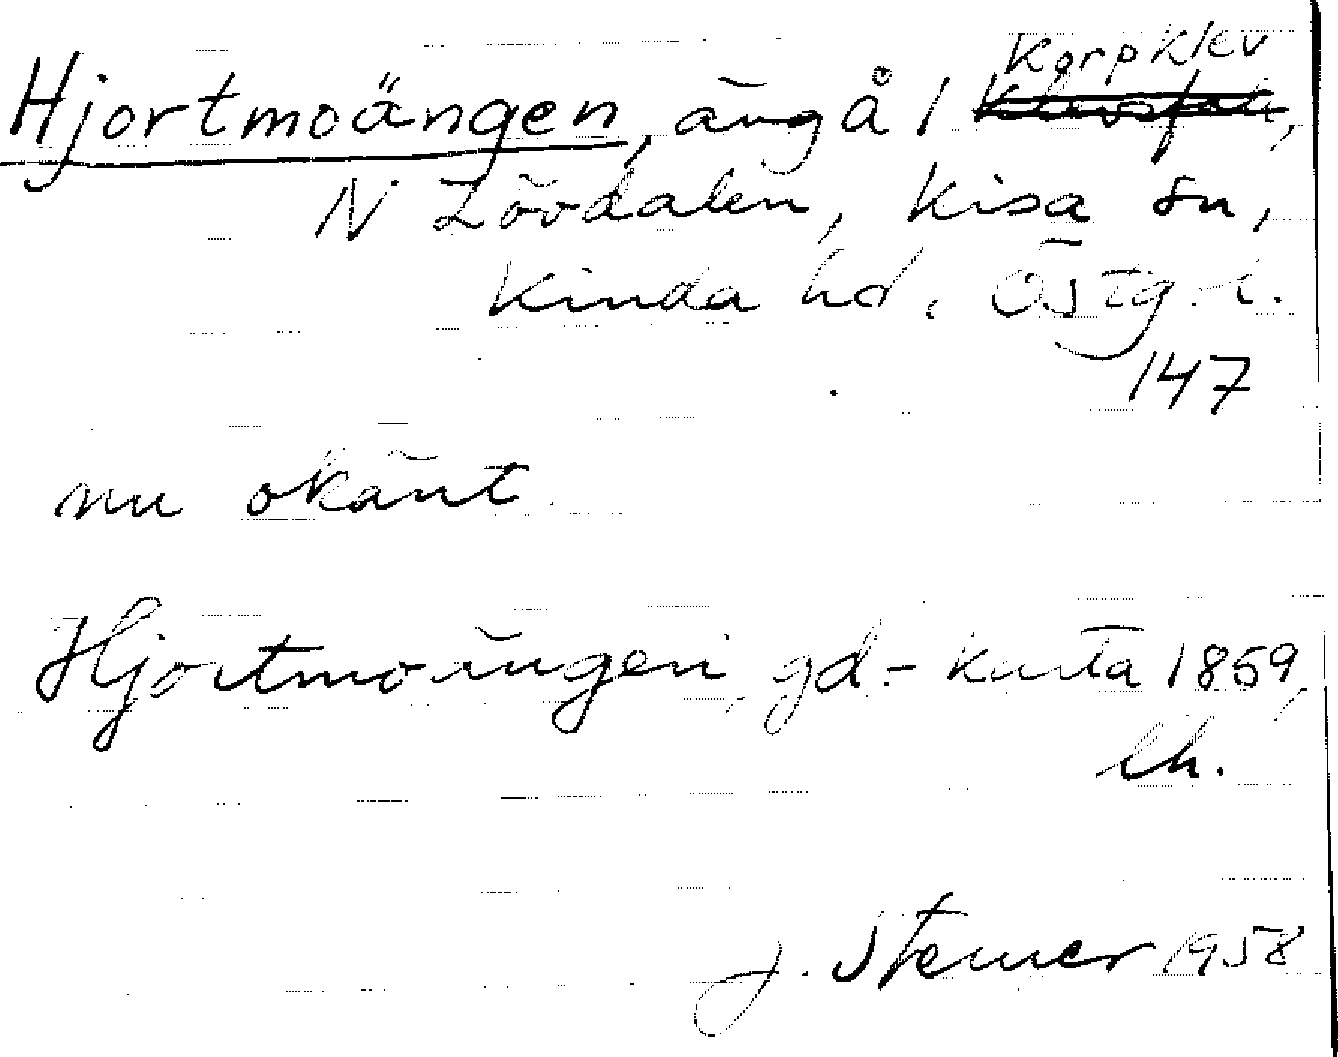 Korpklev
Hjortmoängen, äng å 1
N Lövdalen, Kisa sn,
Kinda hd, Östg. l.
147
nu okänt.
Hjortmoängen, gd-karta 1859,
lh.
J. Stemer 1958